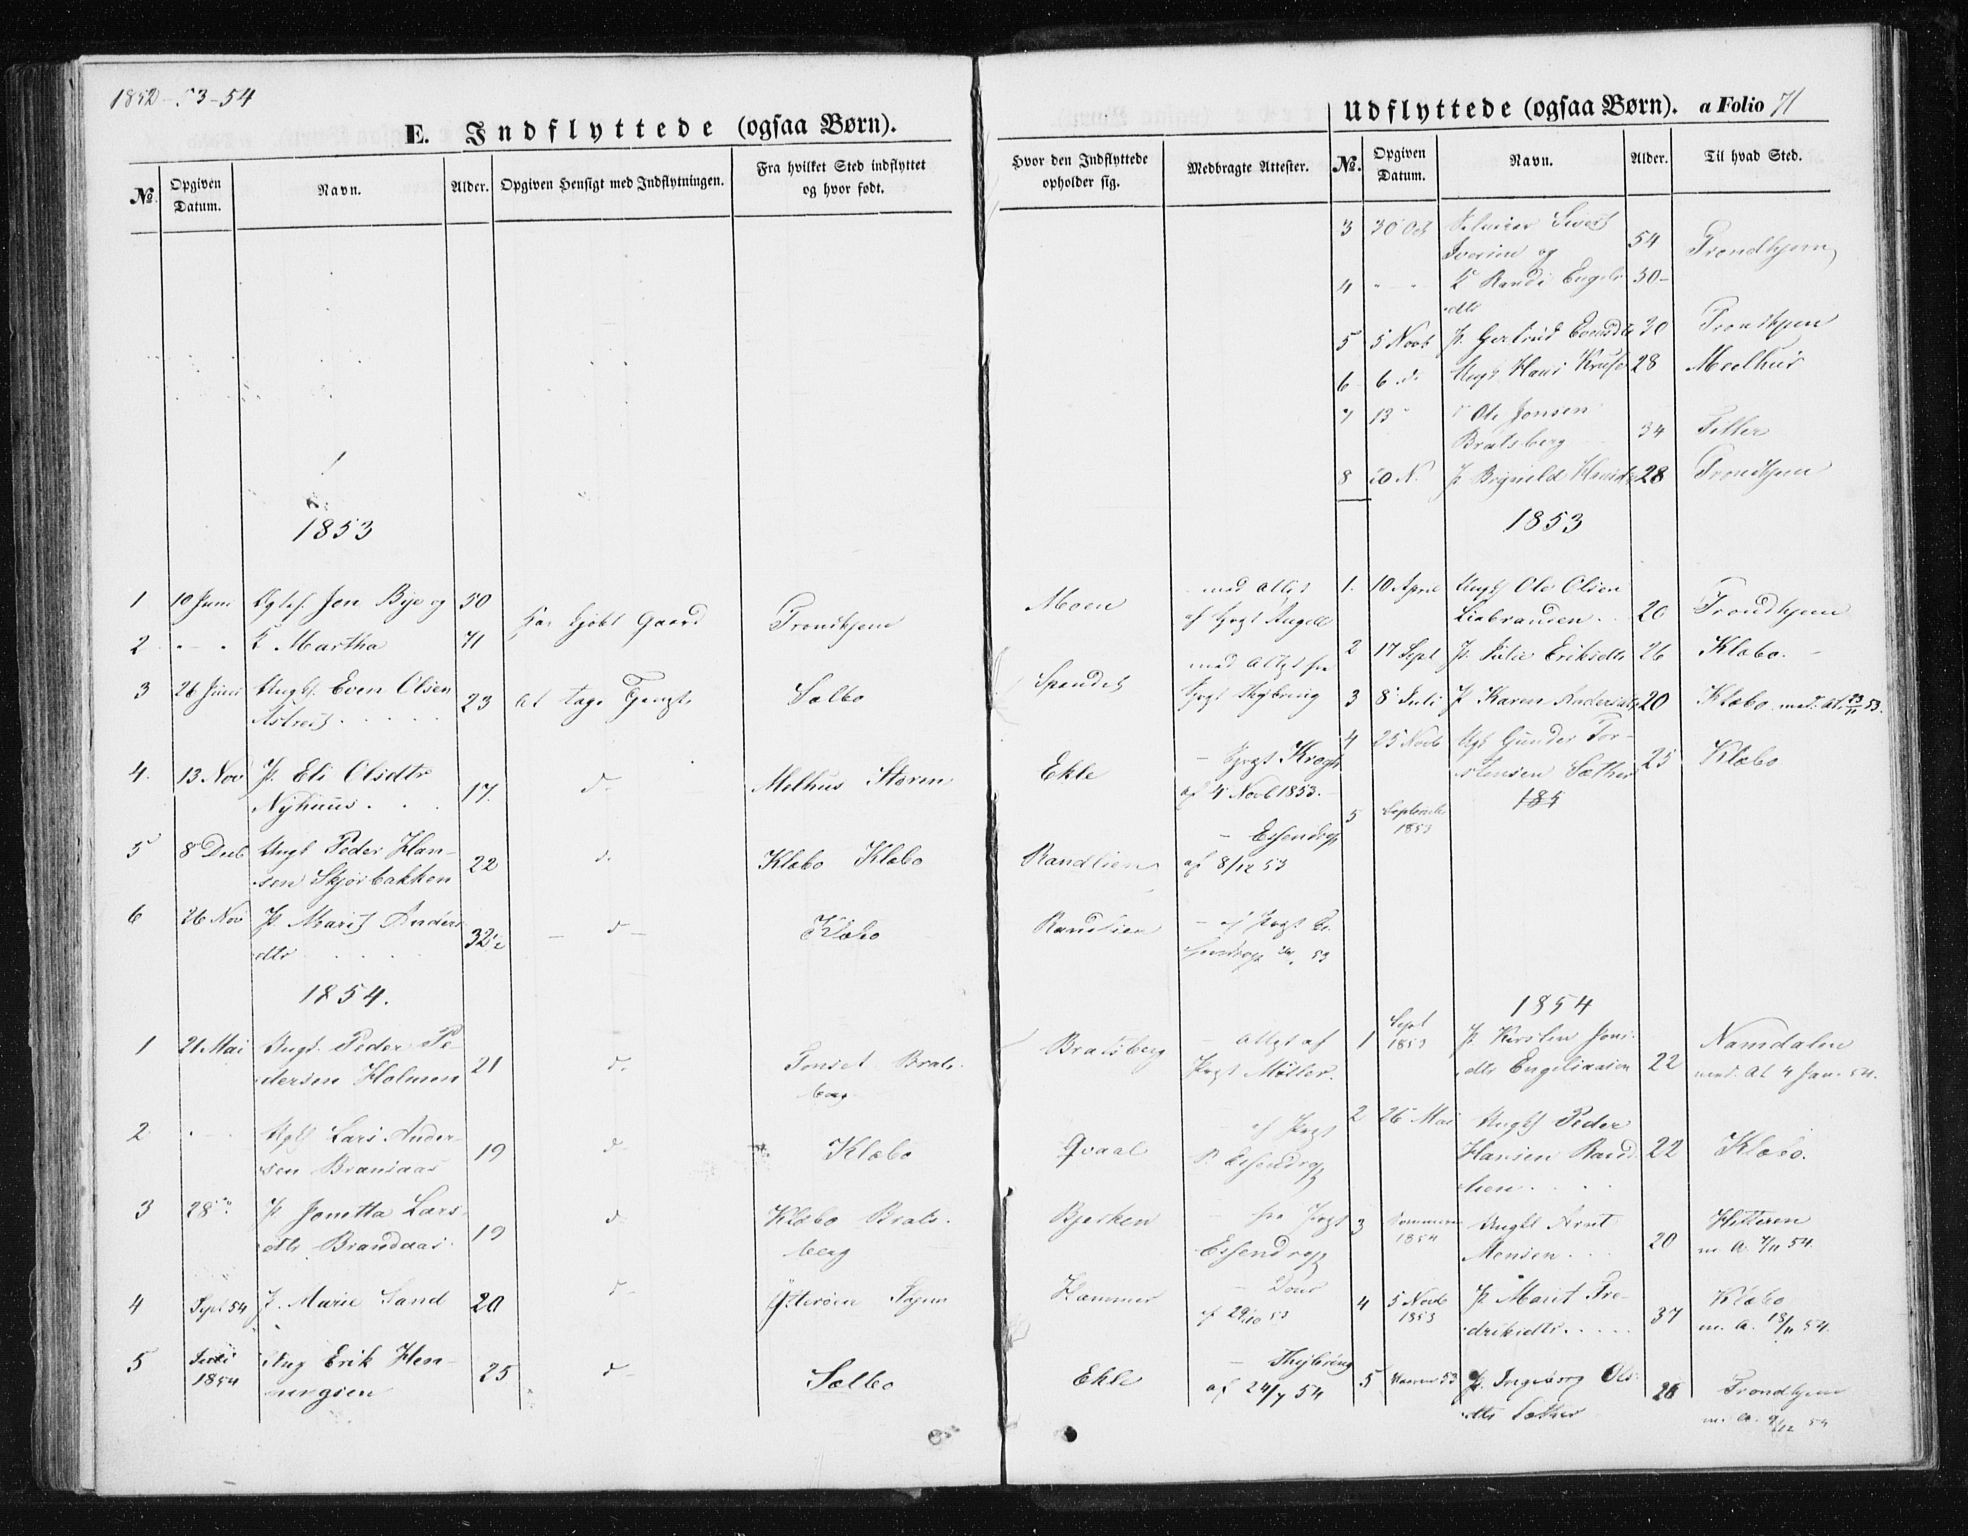 1852-53-54
E. Indflyttede (ogsaa Børn).
№ Opgiven Datum. Navn. Alder. Opgiven Hensigt med Indflytningen. Fra hvilket Sted indflyttet og hvor født.
1853
1 10 Juni Jon Bye og 50 har kjøbt Gaard Trondhjem
2 " - " K Martha 71
3 26 Juni Ungk. Even Olsen
23 At tage Tjeneste Sælbo
4. 13 Nov P. Eli Olsdtr
Nyhuus . . . 17. d- Melhus Støren
5 8 Decb Ungk Peder Han-
sen Skjørbakken 22 d. Klæbo Klæbo
6 26 Nov P. Marit Anders
dtr . . . . 32 1/2 - d - Klæbo
1854.
1 21 Mai Ungk. Peder Pe-
dersen Holmen 21 d. Tonset Brats-
berg
2 . - . Lars Ander-
sen Brandaas 19 d- Klæbo
3 28 P Jonetta Lars-
dtr Brandaas. 19 d- Klæbo Brats-
berg
4 Sept 54 P. Marie Sand 20 d- Ytterøen
5 Juli
1854 Ung Erik Hen-
ningsen 25 d- Sælbo
Hvor den Indflyttede opholder sig. Medbragte Attester.
Moen med Attest
af Angell
Spandet med Attest fra
Ekle - Krogh
af 4 Novb 1853.
Randlien - Essendrop
af 8/12 53
Randlien - af Es-
sendrop 53
Bratsberg - Attest af
Møller.
Qvaal af
Essendrop
Bjerken - fra
Essendrop
Hammer
af 29/10 53
Ekle
af 24/7 54
Udflyttede (ogsaa Børn). a Folio 71
№. Opgiven Datum. Navn. Alder. Til hvad Sted.
3 30 Oct Sivert
Iversen og 54 Trondhjem
4 " - " K Randi Engels
dtr 50-
5 5 Novb P. Gertrud Evensdtr 30 Trondhjem
6 6 d. Ungk. Hans Kruse 28 Meelhus
7 13 " Ole Jonsen
Bratsberg 34 Tiller
8 20 N. P Brynild Hansdtr 28 Trondhjem
1853
1. 10 April Ungk Ole Olsen
Liabranden . . 20 Trondhjem
2 17 Sept P. Eriksdtr 26 Klæbo. -
3 8 Juli P Karen Andersdtr 20 Klæbo med. At. 53.
4 25 Novb Gunder Tor-
stensen Sæther 25 Klæbo
185
5 Septembr
1853
1854
1 Sept
1853 P. Kirsten Jons-
dtr Engeliaasen 22 Namdalen
med. At 4 Jan. 54.
2 26 Mai Ungk Peder
Hansen Rand-
lien . . . . 22 Klæbo.
3 Sommeren
1854 Ungk Arnt
Monsen . . . 20 Hitteren
m. A. 7/11 54.
4 5 Novb
1853 P. Marit Fre-
driksdtr . . . . 37 Klæbo
m. A. 18/11 54.
5 Vaaren 53 P. Ingeborg Ols-
dtr Sæther 26 Trondhjem
m. A. 9/12 54